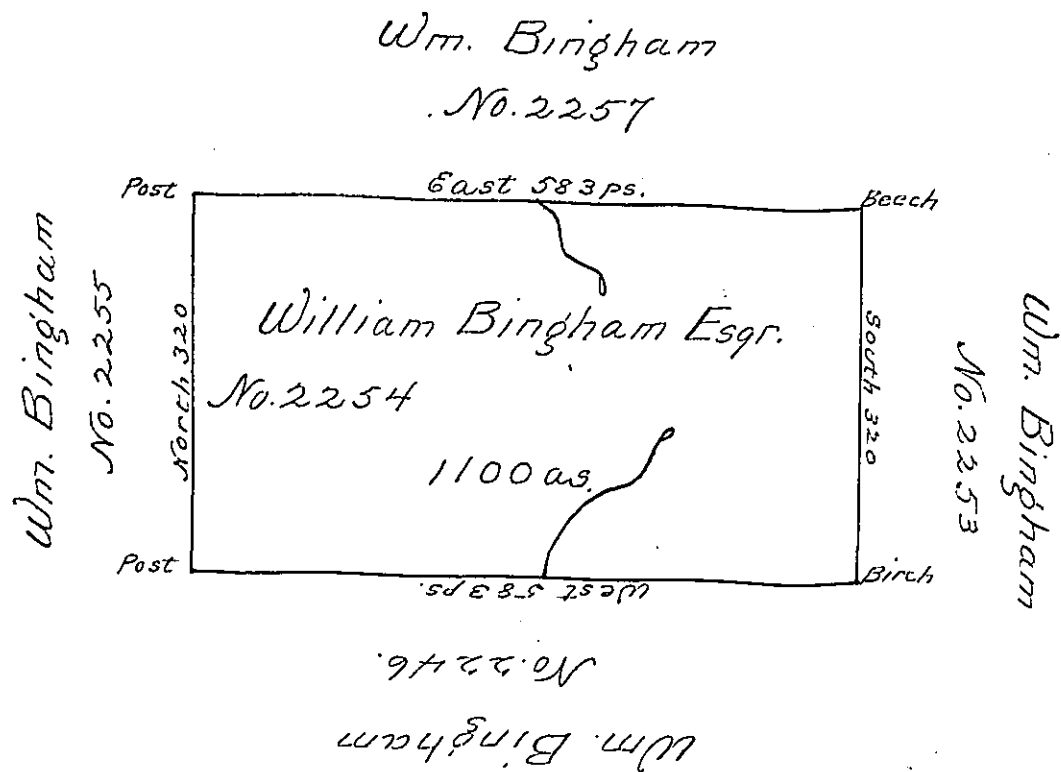 Wm. Bingham
No. 2257
Post
East 583 ps.
Beech
Wm. Bingham
No. 2255
North 320
William Bingham Esqr.
No. 2254
1100 as.
South 320
No. 2253
Wm. Bingham
Post
West 583 ps.
Birch
No. 2246.
Wm. Bingham